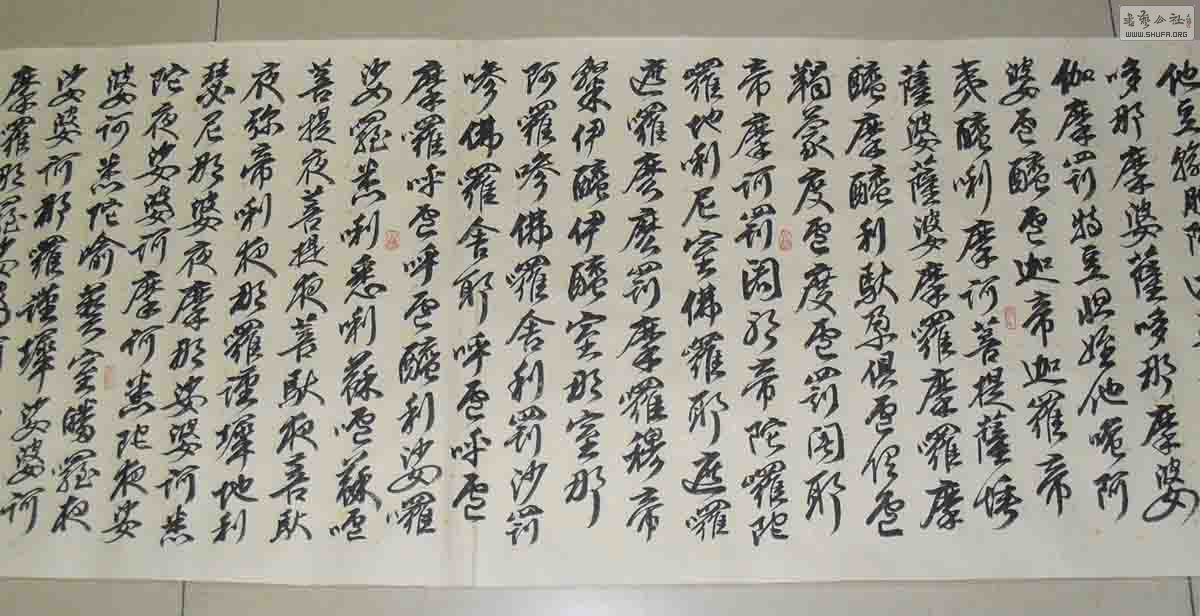 他豆輸朋阿
哆那摩婆薩哆那摩婆
伽摩罰特豆怛姪他唵阿
婆盧醯盧迦帝迦羅帝
夷醯唎摩訶菩提薩埵
薩婆薩婆摩囉摩囉摩
醯摩醯利馱孕俱盧俱盧
羯蒙度盧度盧罰闍耶
帝摩訶罰闍耶帝陀囉陀
羅地唎尼室佛囉耶遮羅
遮囉麼麼罰摩囉穆帝
隸伊醯伊醯室那室那
阿囉嘇佛囉舍利罰沙罰
嘇佛羅舍耶呼盧呼盧
摩囉呼盧呼盧醯利娑囉
娑囉悉唎悉唎蘇嚧蘇嚧
菩提夜菩提夜菩馱夜菩馱
夜弥帝唎夜那囉謹墀地利
瑟尼那婆夜摩那娑婆訶悉
陀夜娑婆訶摩訶悉陀夜娑
婆訶悉陀喻藝室皤囉夜
娑婆訶那囉謹墀娑婆訶
摩羅那羅
书艺公社
WWW.SHUFA.ORG